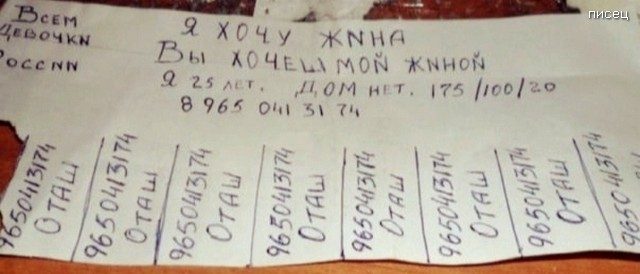 писец
Всем
Девочки
России
Я хочу жина
Вы хочеш мой жиной
Я 25 лет. Дом нет. 175/100/20
8 965 041 31 74
9650413174
Оташ
9650413174
Оташ
9650413174
Оташ
9650413174
Оташ
9650413174
Оташ
9650413174
Оташ
9650413174
Оташ
9650413174
Оташ